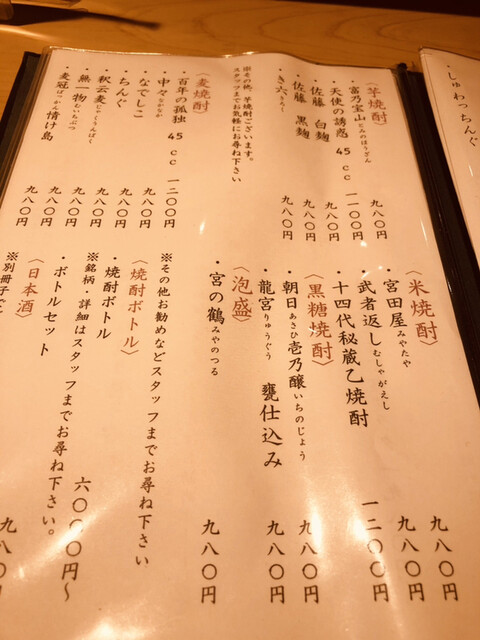 ・しゅわっちんぐ
〈芋焼酎〉
・富乃宝山 とみのほうざん 九八〇円
・天使の誘惑 45cc 一一〇〇円
・佐藤 白麹 九八〇円
・佐藤 黒麹 九八〇円
・き六 きろく 九八〇円
※その他、芋焼酎ございます。
スタッフまでお気軽にお尋ね下さい
〈麦焼酎〉
・百年の孤独 45cc 一二〇〇円
・中々 なかなか 九八〇円
・なでしこ 九八〇円
・ちんぐ 九八〇円
・釈云麦 じゃくうんばく 九八〇円
・無一物 むいちぶつ 九八〇円
・麦冠 ばっかん 情け島 九八〇円
〈米焼酎〉
・宮田屋 みやたや 九八〇円
・武者返し むしゃがえし 九八〇円
・十四代秘蔵乙焼酎 一二〇〇円
〈黒糖焼酎〉
・朝日 あさひ 壱乃醸 いちのじょう 九八〇円
・龍宮 りゅうぐう 甕仕込み 九八〇円
〈泡盛〉
・宮の鶴 みやのつる 九八〇円
※その他お勧めなどスタッフまでお尋ね下さい
〈焼酎ボトル〉
・焼酎ボトル 六〇〇〇円〜
※銘柄・詳細はスタッフまでお尋ね下さい。
・ボトルセット 九八〇円
〈日本酒〉
※別冊子で